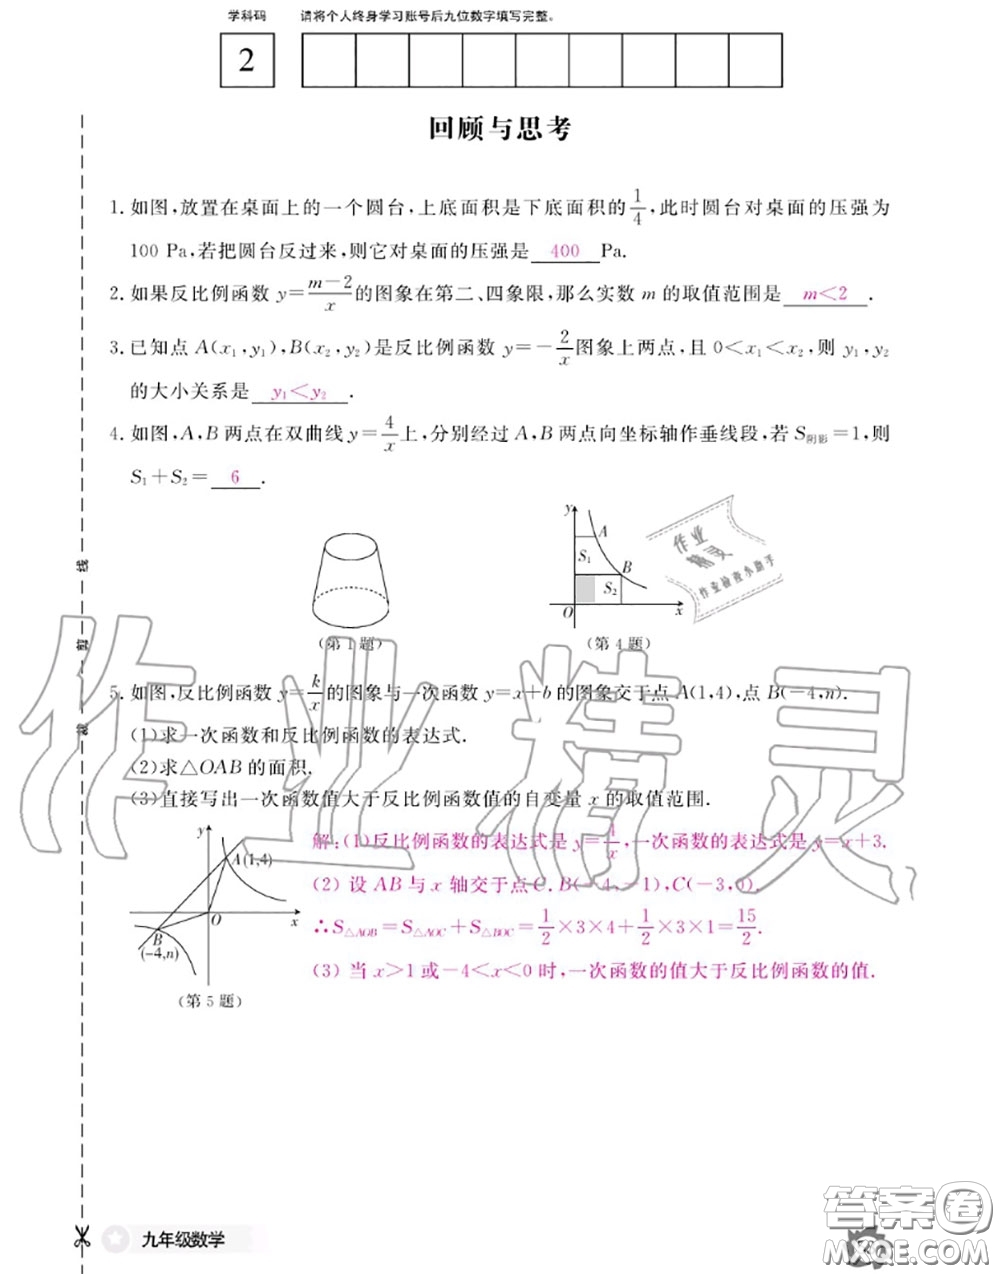 学科码 请将个人终身学习账号后九位数字填写完整。
2
回顾与思考
1.如图,放置在桌面上的一个圆台,上底面积是下底面积的1/4,此时圆台对桌面的压强为
100 Pa,若把圆台反过来,则它对桌面的压强是 400 Pa.
2.如果反比例函数 y=(m-2)/x的图象在第二、四象限,那么实数 m 的取值范围是 m<2 .
3.已知点 A(x₁,y₁),B(x₂,y₂)是反比例函数 y=-2/x图象上两点,且 0<x₁<x₂,则 y₁,y₂
的大小关系是 y₁<y₂ .
4.如图,A,B 两点在双曲线 y=4/x上,分别经过 A,B 两点向坐标轴作垂线段,若 S阴影=1,则
S₁+S₂= 6 .
y
A
S₁
B
S₂
O
x
(第 1 题)
(第 4 题)
作业
精灵
作业检查小助手
线
剪
裁
作业精灵
5.如图,反比例函数 y=k/x的图象与一次函数 y=x+b 的图象交于点 A(1,4),点 B(-4,n).
(1)求一次函数和反比例函数的表达式.
(2)求△OAB 的面积.
(3)直接写出一次函数值大于反比例函数值的自变量 x 的取值范围.
y
A(1,4)
O
x
B
(-4,n)
(第 5 题)
解:(1)反比例函数的表达式是 y=4/x,一次函数的表达式是 y=x+3.
(2) 设 AB 与 x 轴交于点 C. B(-4,-1),C(-3,0).
∴S△AOB=S△AOC+S△BOC=1/2×3×4+1/2×3×1=15/2.
(3) 当 x>1 或-4<x<0 时,一次函数的值大于反比例函数的值.
九年级数学
答案圈